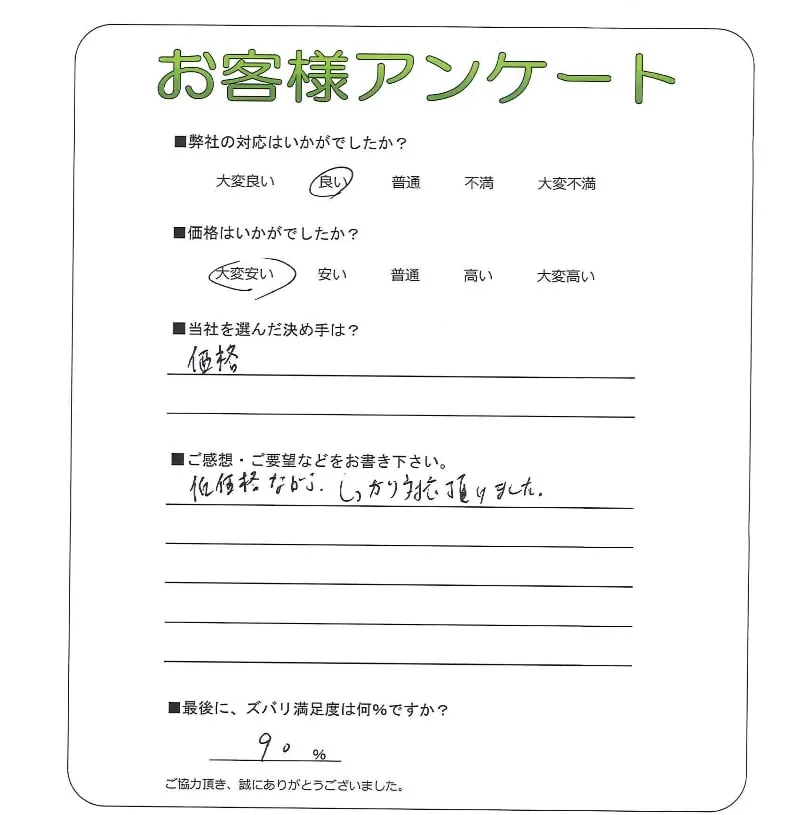 お客様アンケート
■弊社の対応はいかがでしたか？
大変良い 良い 普通 不満 大変不満
■価格はいかがでしたか？
大変安い 安い 普通 高い 大変高い
■当社を選んだ決め手は？
価格
■ご感想・ご要望などをお書き下さい。
低価格ながら、しっかり対応頂けました。
■最後に、ズバリ満足度は何%ですか？
90 %
ご協力頂き、誠にありがとうございました。